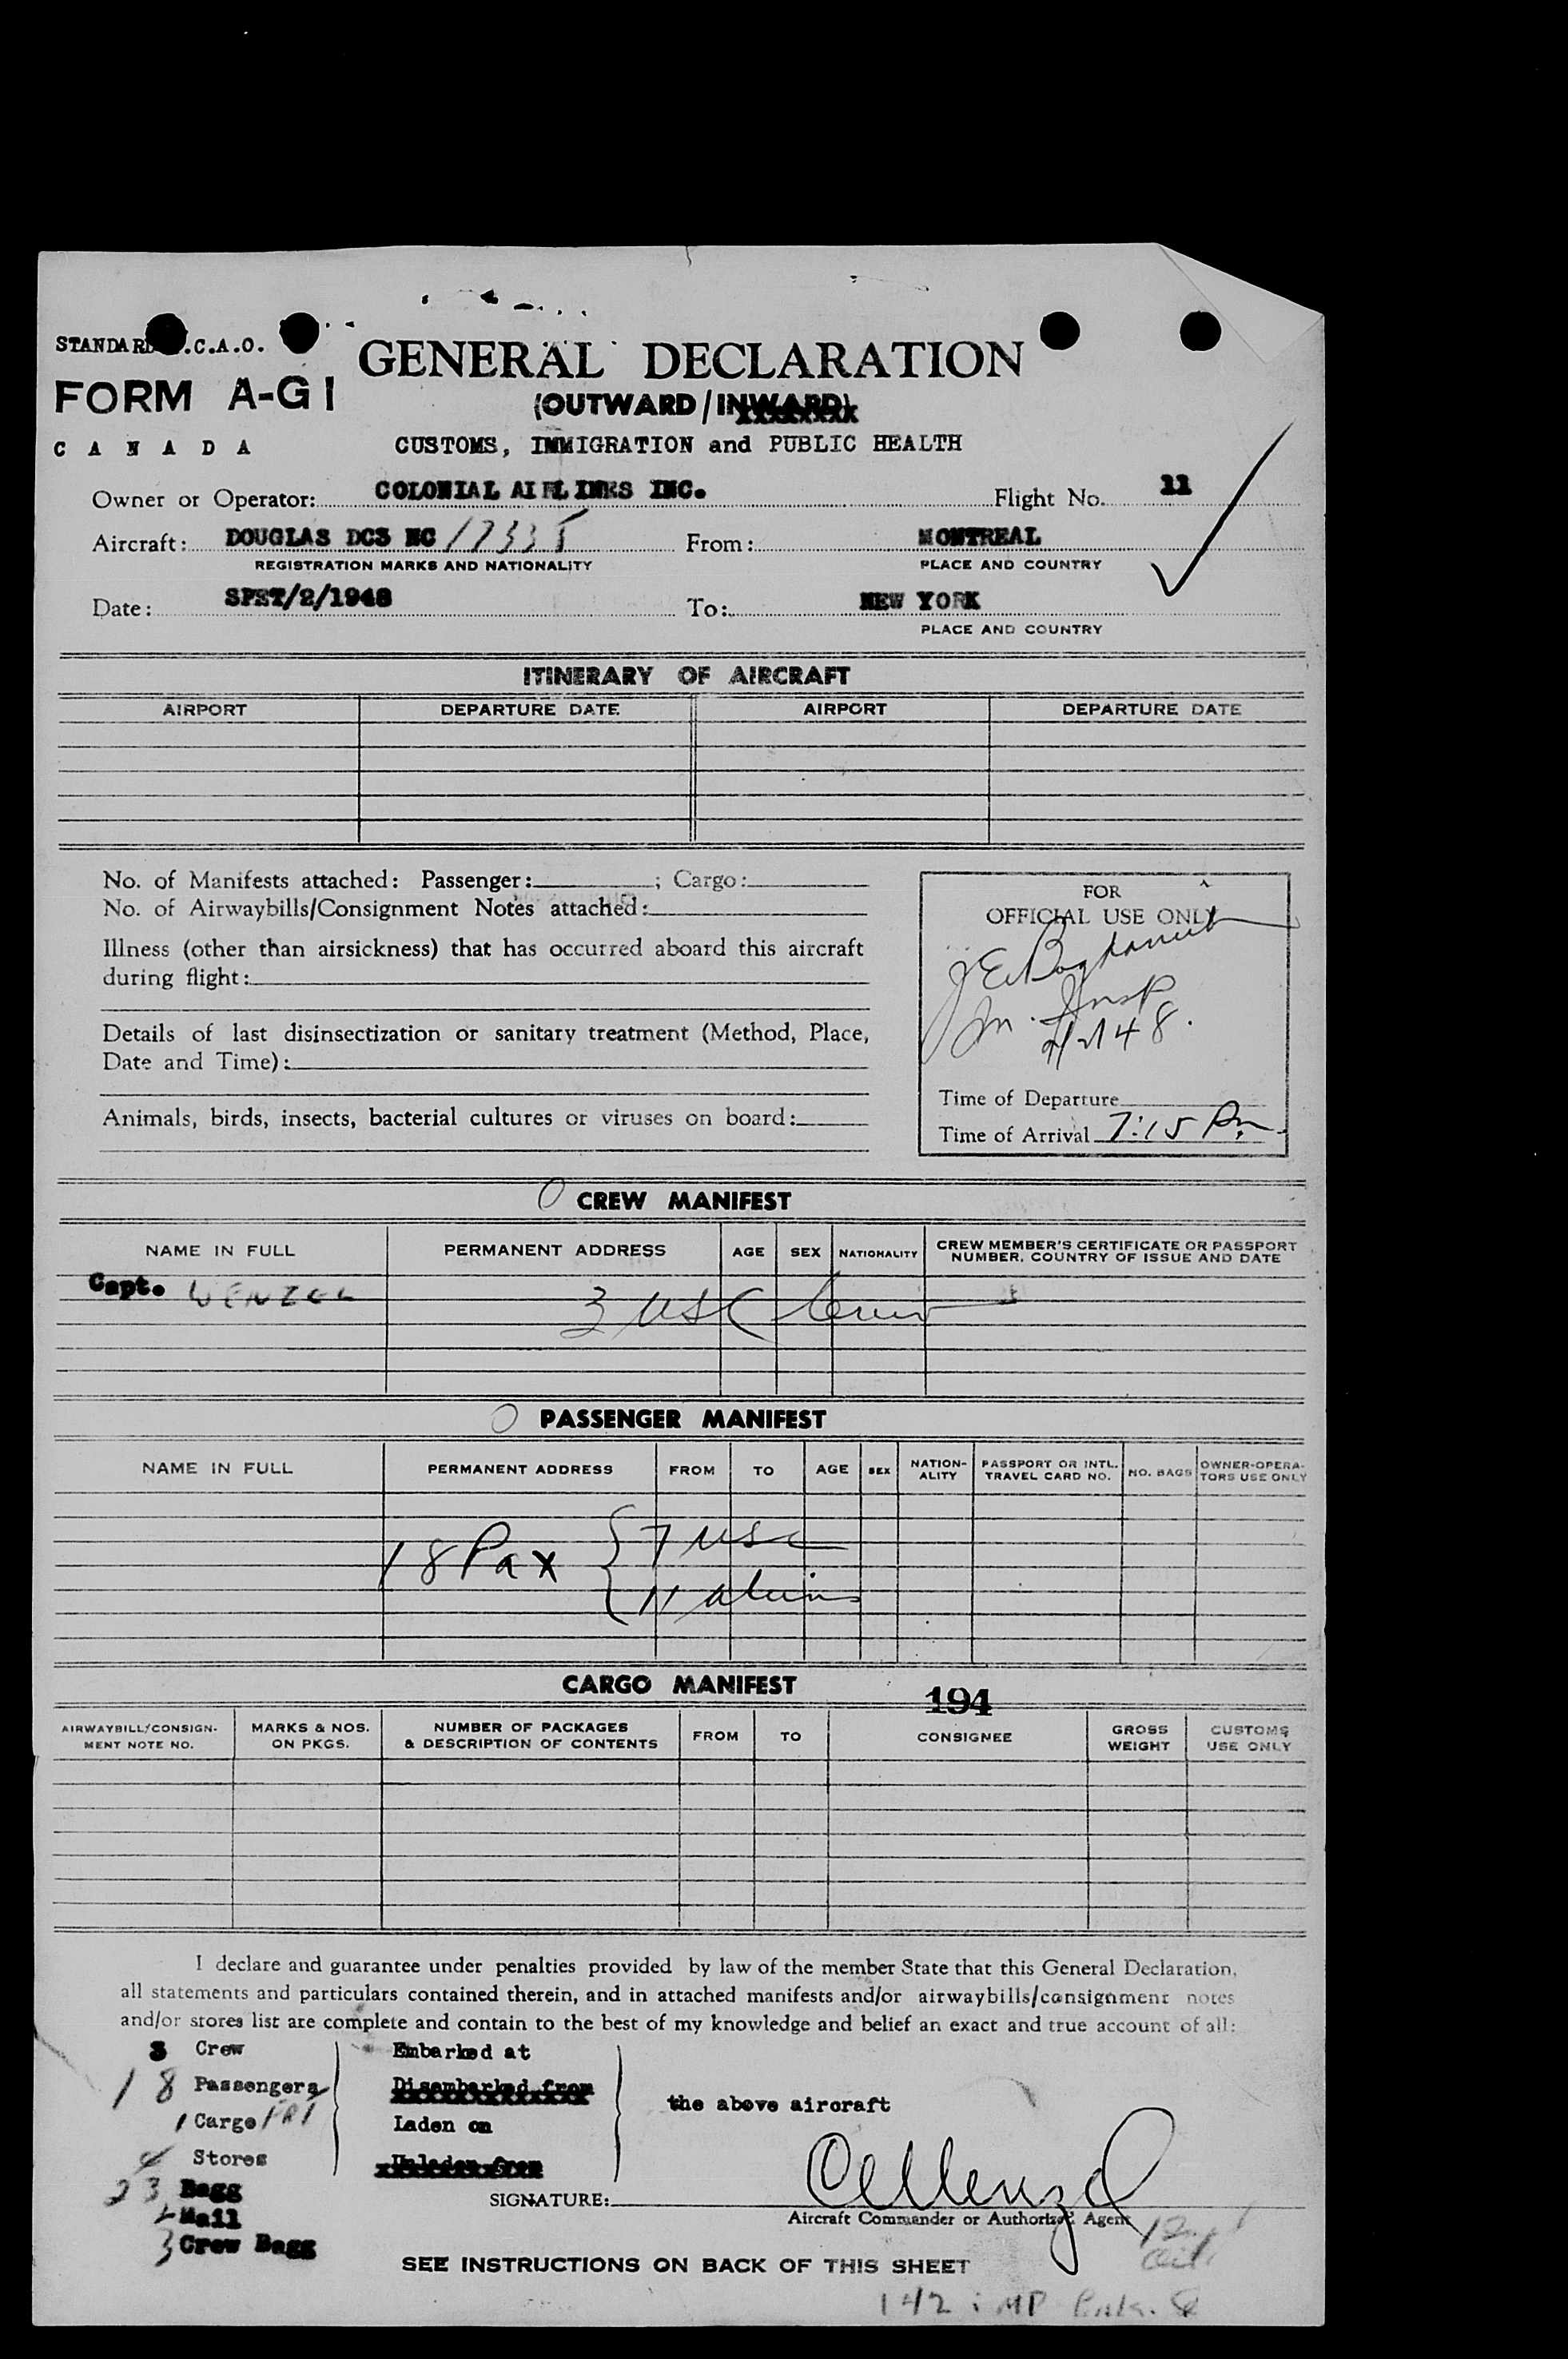 STANDARD .C.A.O.
FORM A-G1
C A N A D A
GENERAL DECLARATION
(OUTWARD/INWARD)
CUSTOMS, IMMIGRATION and PUBLIC HEALTH
Owner or Operator: COLONIAL AIRLINES INC. Flight No. 11
Aircraft: DOUGLAS DC3 NC 17335 From: MONTREAL
REGISTRATION MARKS AND NATIONALITY PLACE AND COUNTRY
Date: SPET/2/1948 To: NEW YORK
PLACE AND COUNTRY
ITINERARY OF AIRCRAFT
AIRPORT DEPARTURE DATE AIRPORT DEPARTURE DATE
No. of Manifests attached: Passenger: ; Cargo:
No. of Airwaybills/Consignment Notes attached:
Illness (other than airsickness) that has occurred aboard this aircraft
during flight:
Details of last disinsectization or sanitary treatment (Method, Place,
Date and Time):
Animals, birds, insects, bacterial cultures or viruses on board:
FOR
OFFICIAL USE ONLY
Insp
Time of Departure
Time of Arrival 7:15 Pm
CREW MANIFEST
NAME IN FULL PERMANENT ADDRESS AGE SEX NATIONALITY CREW MEMBER'S CERTIFICATE OR PASSPORT
NUMBER, COUNTRY OF ISSUE AND DATE
Capt. WENZEL
3 USC Crew
PASSENGER MANIFEST
NAME IN FULL PERMANENT ADDRESS FROM TO AGE SEX NATION-
ALITY PASSPORT OR INTL.
TRAVEL CARD NO. NO. BAGS OWNER-OPERA-
TORS USE ONLY
18 Pax { 7 USC
11 aliens
CARGO MANIFEST
194
AIRWAYBILL/CONSIGN-
MENT NOTE NO. MARKS & NOS.
ON PKGS. NUMBER OF PACKAGES
& DESCRIPTION OF CONTENTS FROM TO CONSIGNEE GROSS
WEIGHT CUSTOMS
USE ONLY
I declare and guarantee under penalties provided by law of the member State that this General Declaration,
all statements and particulars contained therein, and in attached manifests and/or airwaybills/consignment notes
and/or stores list are complete and contain to the best of my knowledge and belief an exact and true account of all:
3 Crew Embarked at
18 Passengers Disembarked from
the above aircraft
1 Cargo Laden on
Stores Unladen from
23 Bagg
Mail
3 Crew Bagg
SIGNATURE:
Aircraft Commander or Authorized Agent
SEE INSTRUCTIONS ON BACK OF THIS SHEET
142